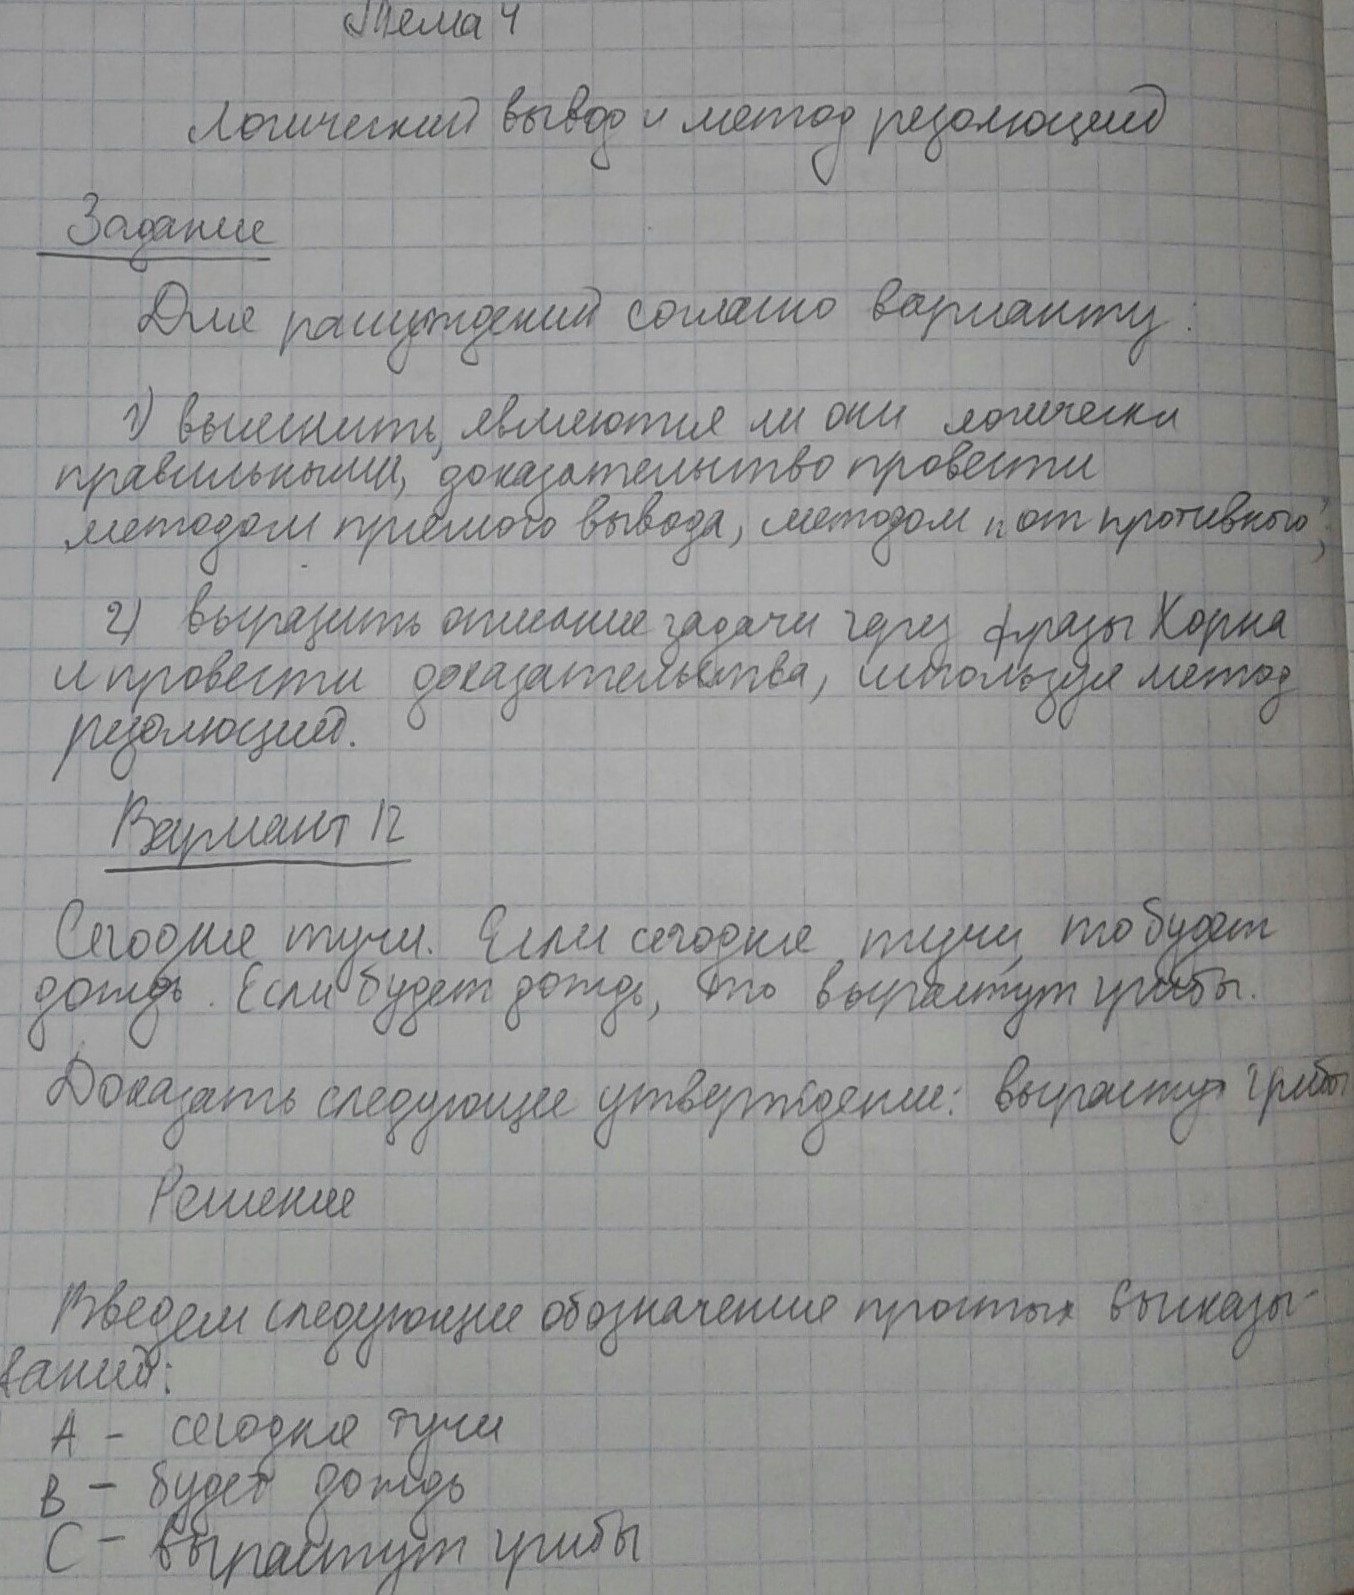 Тема 4
Логический вывод и метод резолюций
Задание
Для рассуждений согласно варианту:
1) выяснить, являются ли они логически
правильными, доказательство провести
методом прямого вывода, методом "от противного";
2) выразить описание задачи через фразы Хорна
и провести доказательства, используя метод
резолюций.
Вариант 12
Сегодня тучи. Если сегодня тучи, то будет
дождь. Если будет дождь, то вырастут грибы.
Доказать следующее утверждение: вырастут грибы
Решение
Введем следующие обозначение простых высказы-
ваний:
А - сегодня тучи
В - будет дождь
С - вырастут грибы